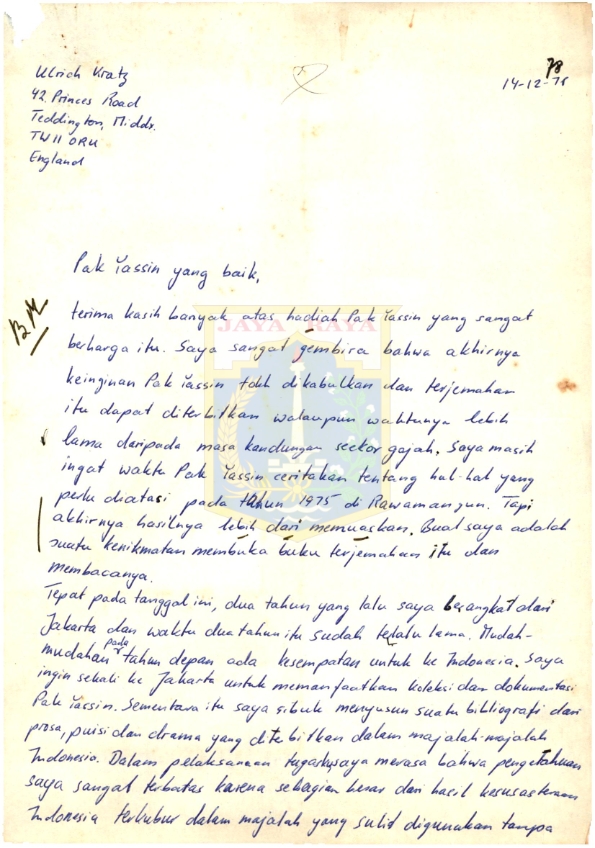 Ulrich Kratz
42 Princes Road
Teddington, Middx.
TW11 0RU
England
78
14-12-78
Pak Yassin yang baik,
BM
terima kasih banyak atas hadiah Pak Yassin yang sangat
JAYA RAYA
berharga itu. Saya sangat gembira bahwa akhirnya
keinginan Pak Yassin tdh dikabulkan dan terjemahan
itu dapat diterbitkan walaupun waktunya lebih
lama daripada masa kandungan seekor gajah. Saya masih
ingat waktu Pak Yassin ceritakan tentang hal-hal yang
perlu diatasi pada tahun 1975 di Rawamangun. Tapi
akhirnya hasilnya lebih dari memuaskan. Buat saya adalah
suatu kenikmatan membuka buku terjemahan itu dan
membacanya.
Tepat pada tanggal ini, dua tahun yang lalu saya berangkat dari
Jakarta dan waktu dua tahun itu sudah terlalu lama. Mudah-
mudahan pada tahun depan ada kesempatan untuk ke Indonesia. Saya
ingin sekali ke Jakarta untuk memanfaatkan koleksi dan dokumentasi
Pak Yassin. Sementara itu saya sibuk menyusun suatu bibliografi dari
prosa, puisi dan drama yang diterbitkan dalam majalah-majalah
Indonesia. Dalam pelaksanaan tugasku saya merasa bahwa pengetahuan
saya sangat terbatas karena sebagian besar dari hasil kesusasteraan
Indonesia terkubur dalam majalah yang sulit digunakan tanpa